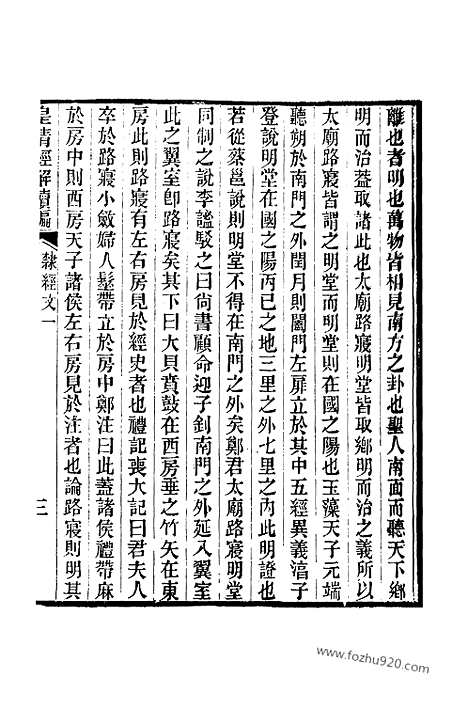 離也者明也萬物皆相見南方之卦也聖人南面而聽天下鄉
明而治葢取諸此也太廟路寢明堂皆取鄉明而治之義所以
太廟路寢皆謂之明堂明堂則在國之陽也玉藻天子元端
聽朔於南門之外閏月則闔門左扉立於其中五經異義淳于
登說明堂在國之陽丙巳之地三里之外七里之內此明證也
若從蔡邕說則明堂不得在南門之外矣鄭君太廟路寢明堂
同制之說李謐駁之曰尚書顧命迎子釗南門之外延入翼室
此之翼室卽路寢矣其下曰大貝賁鼓在西房垂之竹矢在東
房此則路寢有左右房見於經史者也禮記喪大記曰君夫人
卒於路寢小斂婦人髽帶立於房中鄭注曰此葢諸侯禮帶麻
於房中則西房天子諸侯左右房見於注者也論路寢則明其
皇清經解續編
隸經文一
三
www.fozhu920.com